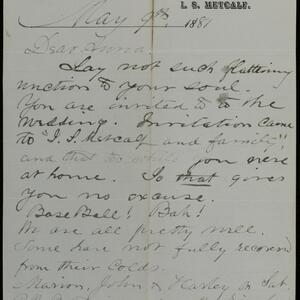 L. S. METCALF.
May 9th, 1881
Dear Anna
Lay not such flattering
unction to your soul.
You are invited to the
wedding. Invitation came
to "I. S. Metcalf and family",
and that to while you were
at home. So that gives
you no excuse.
Base Ball! Bah!
We are all pretty well.
Some have not fully recovered
from their Colds.
Marion, John & Harley on Sat.